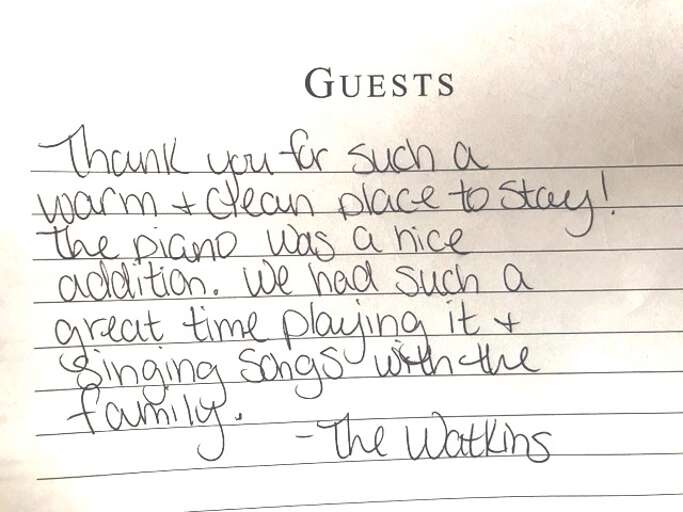 GUESTS
Thank you for such a
warm + clean place to stay!
The piano was a nice
addition. We had such a
great time playing it +
singing songs with the
family.
- The Watkins